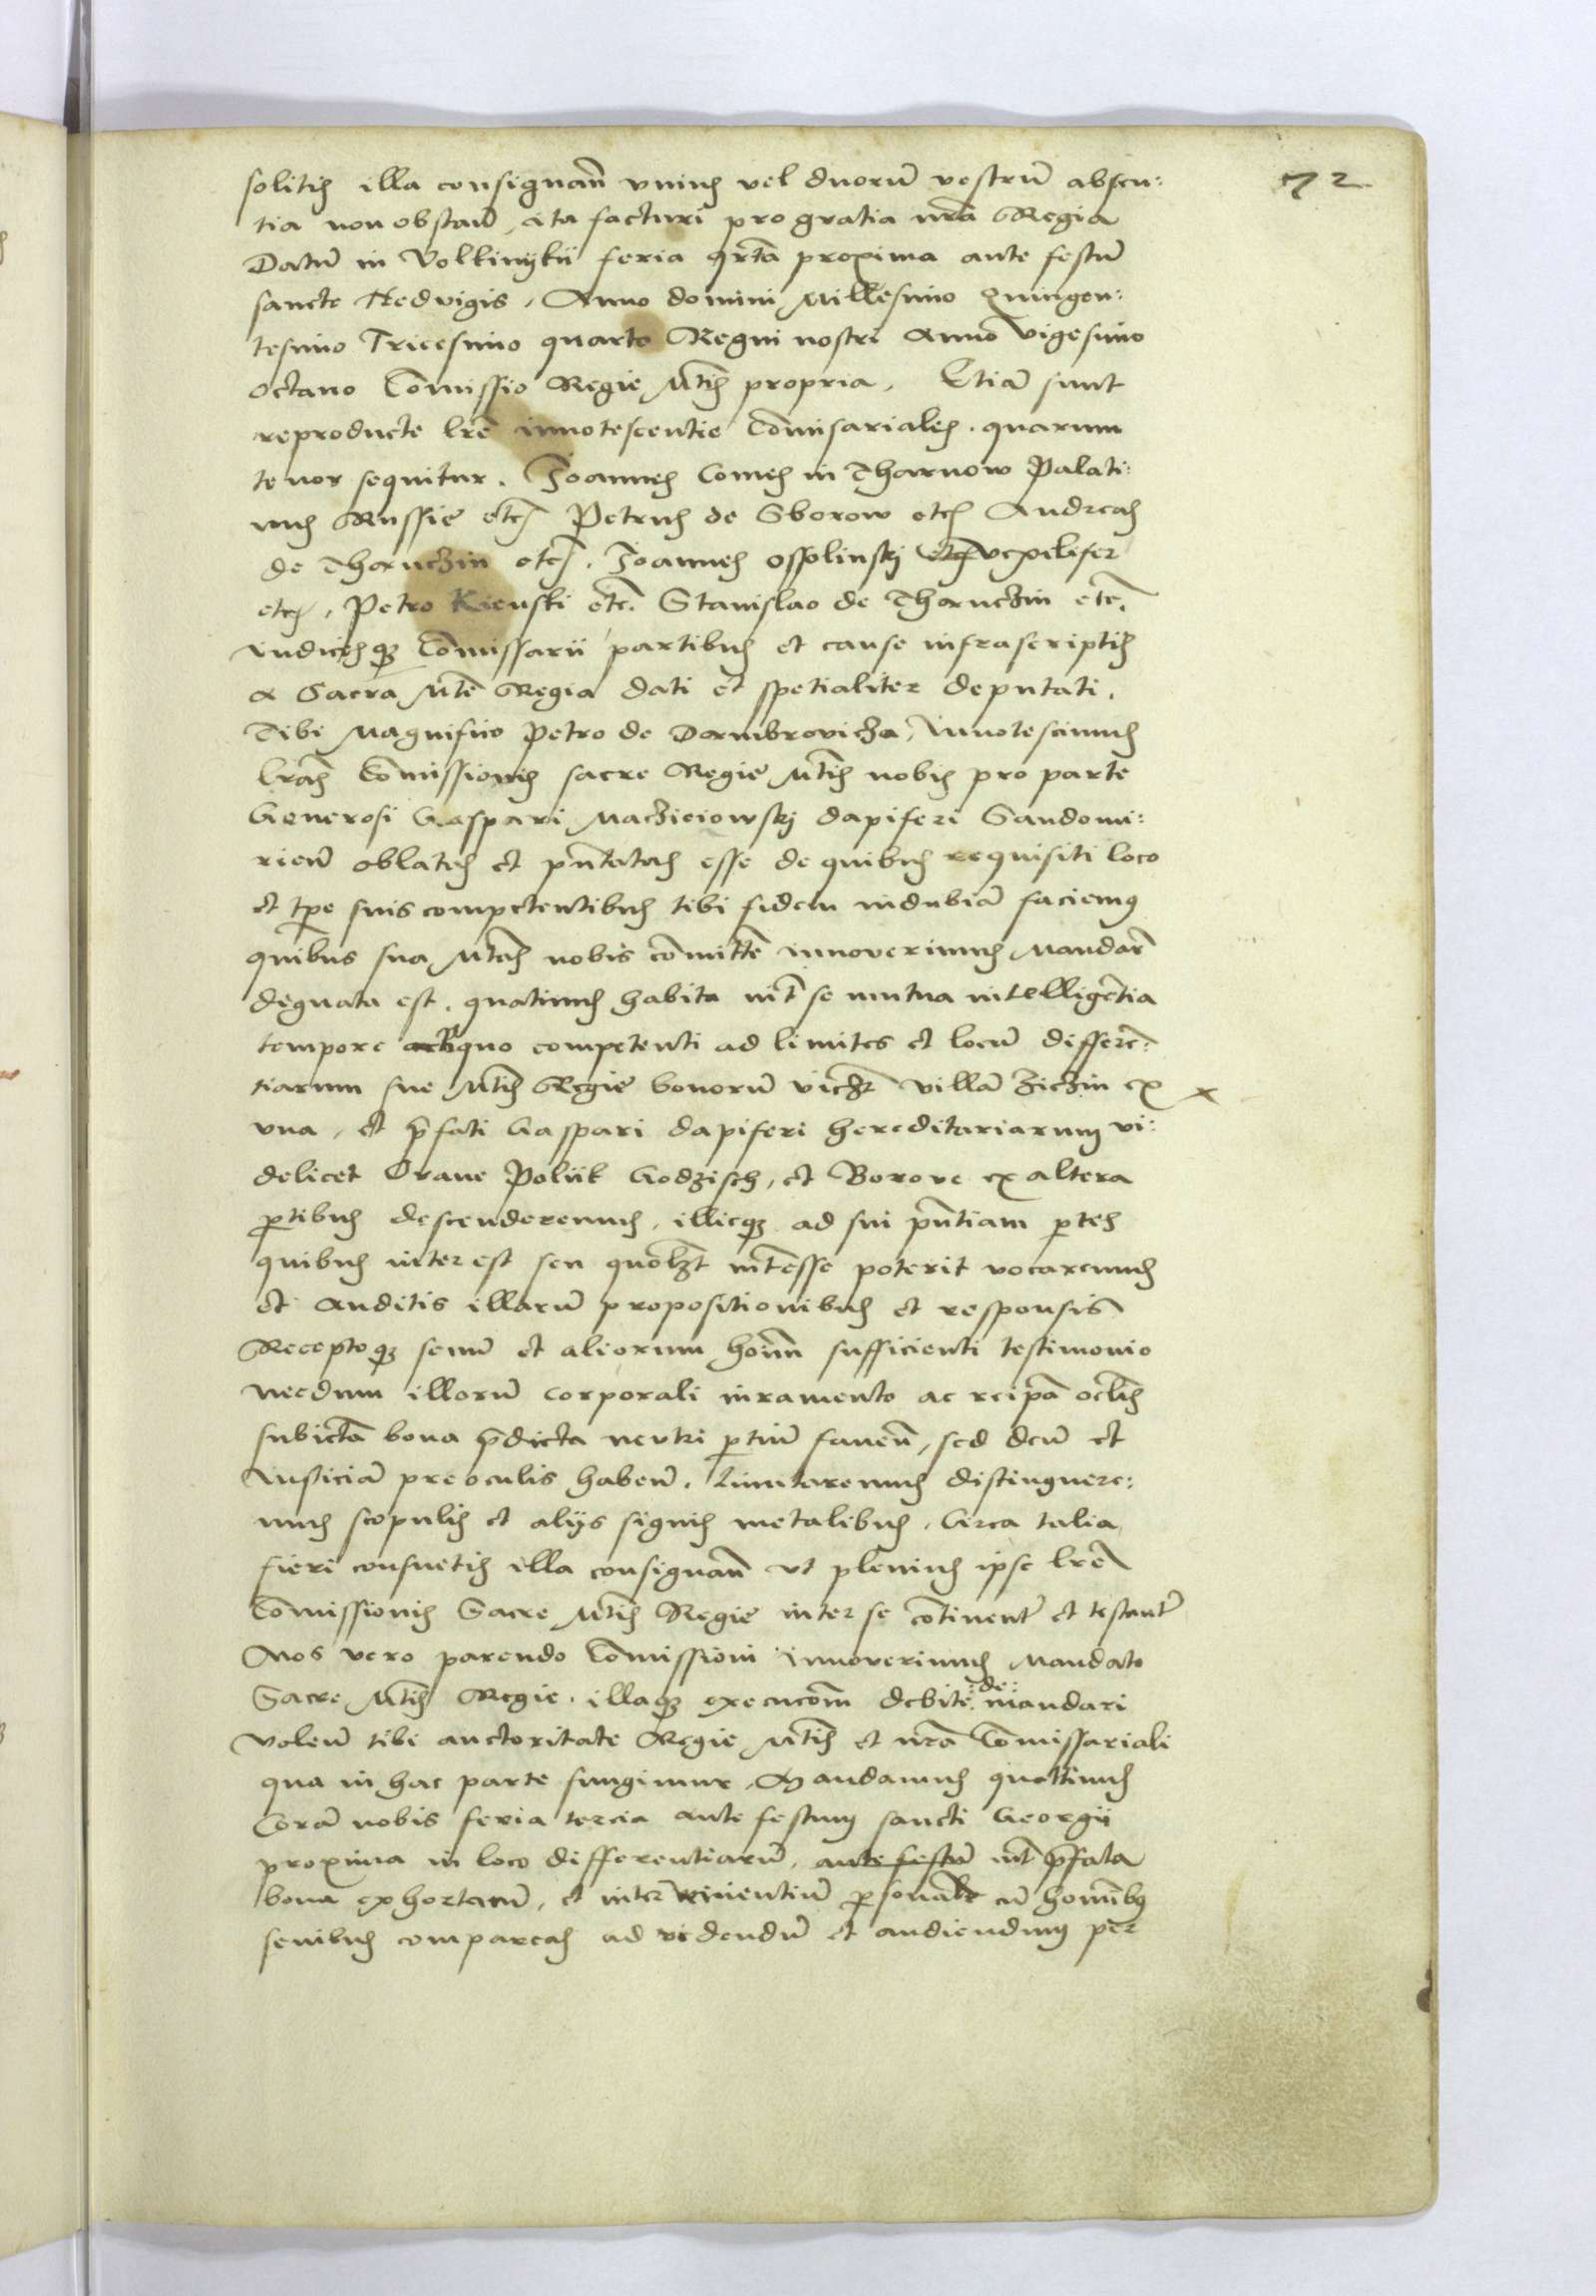 72
solitis illa consignan̄ vnius vel duorū vestrum absen:
tia non obstan̄, ita facturi pro gratia nr̄a Regia
Datū in Volkinykii feria qrtā proxima ante festū
sancte Hedvigis, Anno domini Millesimo quingen:
tesimo Tricesimo quarto Regni nostri Anno vigesimo
octauo Com̄issio Regie Mtīs propria. Etiā sunt
reproducte lrē innotescentie Com̄isariales. quarum
tenor sequitur. Joannes Comes in Tharnow Palati:
nus Russie etc̄ Petrus de Sborow etc̄ Andreas
de Tharnczin etc̄. Joannes Ossolinskj etc̄ vexelifer
etc̄, Petro Kienski etc̄. Stanislao de Tharnczin etc̄.
iudicesq3 Com̄issarii partibus et cause infrascriptis
a Sacra Mtē Regia dati et spetialiter deputati.
Tibi Magnifico Petro de Dambrovicza, Innotescimus
lrās Com̄issionis sacre Regie Mtīs nobis pro parte
Generosi Gaspari Macziciowskj dapiferi Sandomi:
rien̄ oblatas et pn̄tatas esse de quibus requisiti loco
et tp̄e suis competentibus tibi fidem indubiā faciemq
quibus sua Mtās nobis com̄ittē innouerimus Mandarē
dignata est. quatinus habita int̄ se mutua intelligētia
tempore aliquo competenti ad limites et locū differē:
tiarum sue Mtīs Regie bonorū viczt villā Ziczin ex x
vna, et p̄fati Gaspari dapiferi hereditariarum vi:
delicet Orane Poliik Godzisch, et Borove ex altera
ꝑtibus descenderemus, illicq3 ad sui pn̄tiam ꝑtes
quibus interest seu quolzt int̄esse poterit vocaremus
et auditis illarū propositionibus et responsis
Receptoq3 senū et aliorum hoīm sufficienti testimonio
necdum illorū corporali iuramento ac reip̄a oclīs
subiectā bona p̄dicta neutri ꝑtiū fauen̄, sed deū et
Iusticiā pre oculis haben̄. Limitaremus distinguere:
mus scopulis et alijs signis metalibus. Circa talia
fieri consuetis illa consignan̄ vt plenius ipse lrē
Com̄issionis Sacre Mtīs Regie inter se cōtinent̄ et testant̄
Nos vero parendo Com̄issioni innouerimus Mandato
Sacre Mtīs Regie. illaq3 execucōm debite :de: mandari
volen̄ tibi auctoritate Regie Mtīs et nr̄a Com̄issariali
qua in hac parte fungimur. Mandamus quattinus
Corā nobis feria tercia ante festum sancti Georgii
proxima in loco differentiarū, ante festū int̄ p̄fata
bona exhortarū, et inter venientiū ꝑsonalr̄ cū hoīnibq
senibus compareas ad videndū et audiendum per